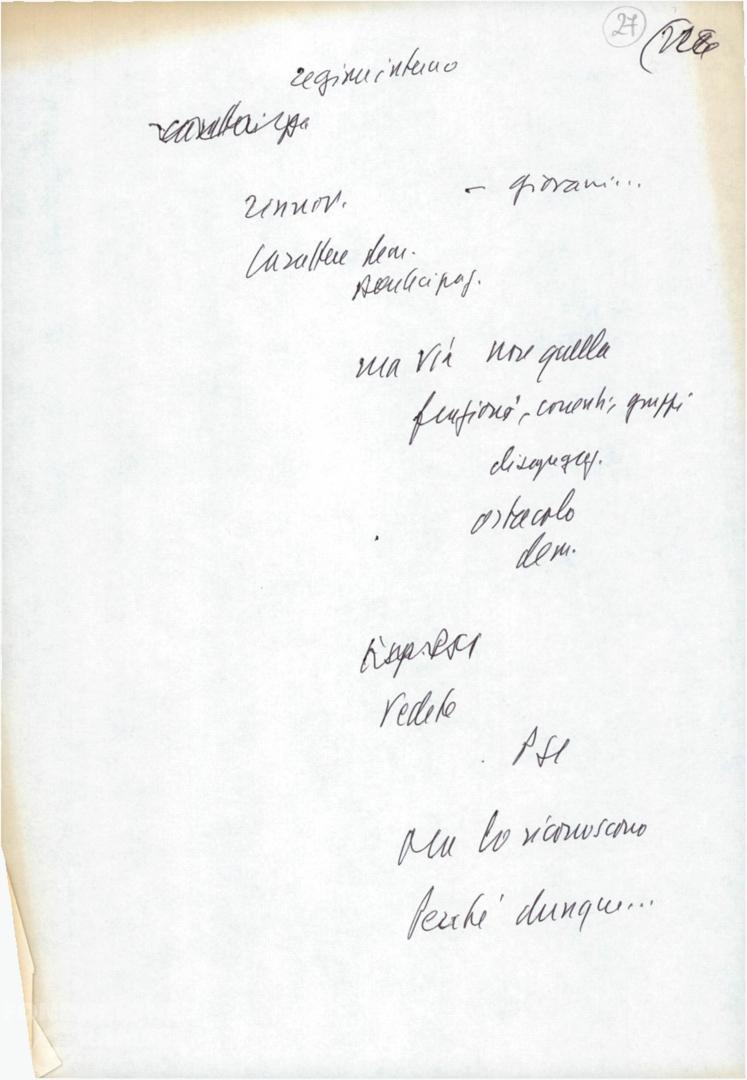 27
regime interno
rinnov. - giovani...
Carattere dem.
partecipaz.
ma via non quella
frazioni, correnti, gruppi
disgregaz.
ostacolo
dem.
Vedete
PSI
Ma lo riconoscono
Perché dunque...